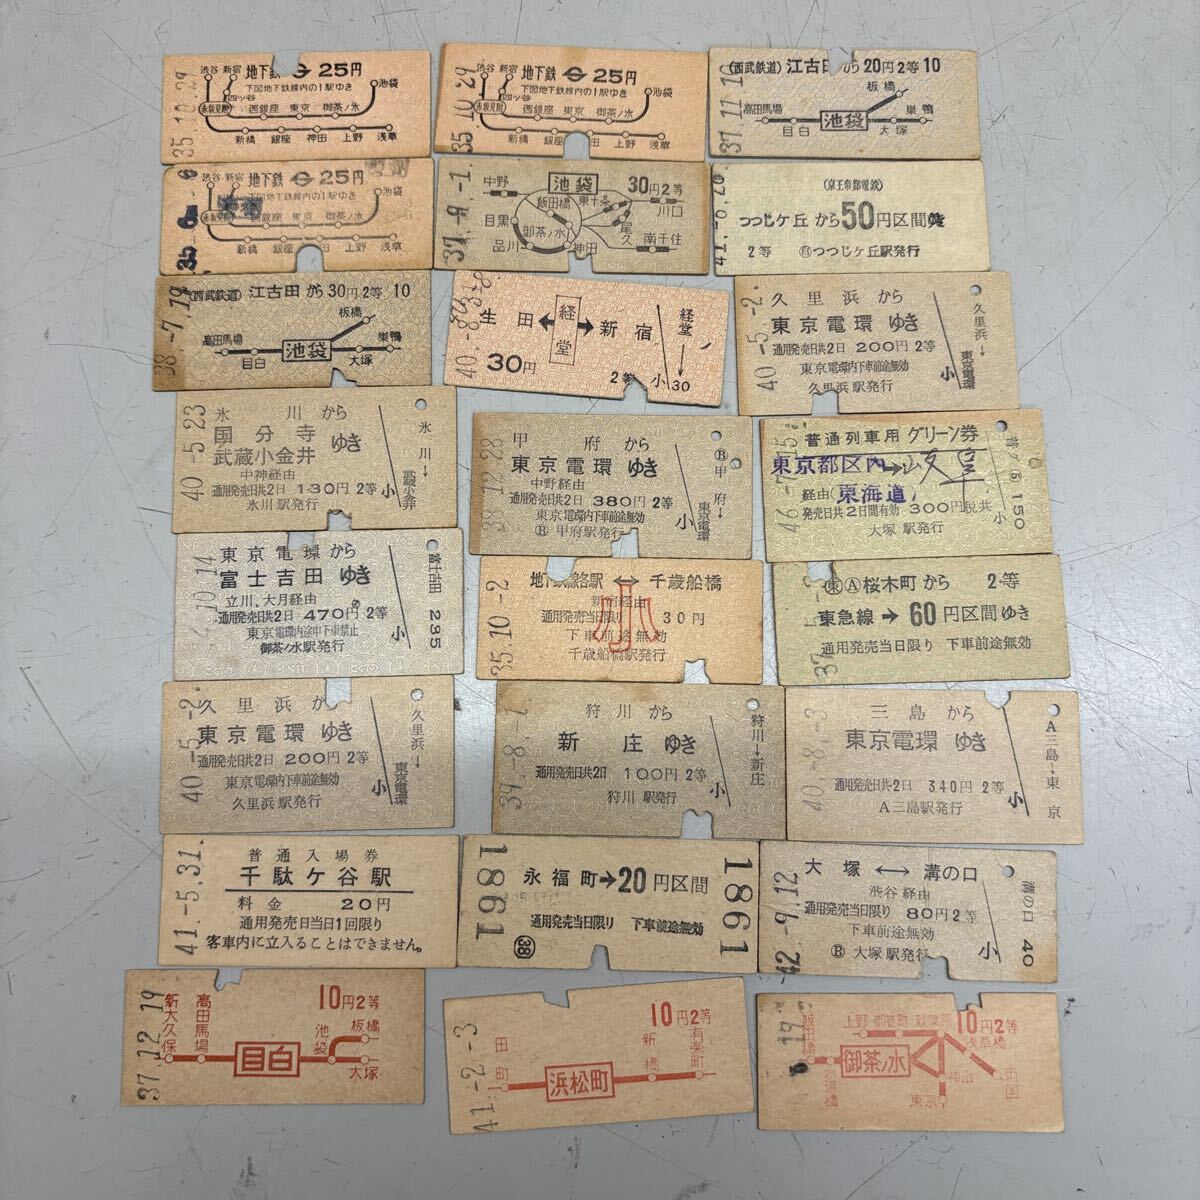 渋谷 新宿 地下鉄 25円
下図地下鉄線内の1駅ゆき
池袋
四ツ谷
赤坂見附 西銀座 東京 御茶ノ水
新橋 銀座 神田 上野 浅草
35.10.29
渋谷 新宿 地下鉄 25円
下図地下鉄線内の1駅ゆき
池袋
四ツ谷
赤坂見附 西銀座 東京 御茶ノ水
新橋 銀座 田 上野 浅草
35.10.29
(西武鉄道) 江古田から20円2等 10
板橋
高田馬場 池袋 巣鴨
目白 大塚
37.11.1
渋谷 新宿 地下鉄 25円
下図地下鉄線内の1駅ゆき
池袋
赤坂見附 西銀座 東京 御茶ノ水
新橋 銀座 神田 上野 浅草
中野 池袋 30円2等
飯田橋 東十条 川口
目黒 御茶ノ水 尾久
品川 神田 南千住
37.-9.-1
(京王帝都電鉄)
つつじケ丘から50円区間ゆき
2等 つつじケ丘駅発行
(西武鉄道) 江古田から30円2等 10
板橋
高田馬場 池袋 巣鴨
目白 大塚
38.-7.19
生田 経堂 新宿
30円 2等 小
経堂→ 30
久里浜から
東京電環ゆき
通用発売日共2日 200円 2等
東京電環内下車前途無効
久里浜駅発行
小
久里浜→東京電環
40.-5.-2
氷川から
国分寺
武蔵小金井 ゆき
中神経由
通用発売日共2日 130円 2等
氷川駅発行
小
氷川→武蔵小金井
40.-5.23
甲府から
東京電環ゆき
中野経由
通用発売日共2日 380円 2等
東京電環内下車前途無効
Ⓑ 甲府駅発行
小
Ⓑ甲府→東京電環
38.12.28
普通列車用 グリーン券
東京都区内→岐阜
経由(東海道)
発売日共2日間有効 300円税共
大塚駅発行
小
150
東京電環から
富士吉田ゆき
立川、大月経由
通用発売日共2日 470円 2等
東京電環内途中下車禁止
御茶ノ水駅発行
小
富士吉田 235
10.14
地下鉄線各駅 ↔ 千歳船橋
新宿経由
通用発売当日限り 30円
下車前途無効
千歳船橋駅発行
小
35.10.-2
東Ⓐ桜木町から 2等
東急線→60円区間ゆき
通用発売当日限り 下車前途無効
37.-5.-3
久里浜から
東京電環ゆき
通用発売日共2日 200円 2等
東京電環内下車前途無効
久里浜駅発行
小
久里浜→東京電環
40.-5.-2
狩川から
新庄ゆき
通用発売日共2日 100円 2等
狩川駅発行
小
狩川→新庄
39.-8.-1
三島から
東京電環ゆき
通用発売日共2日 340円 2等
A三島駅発行
小
A三島→東京
40.-8.-3
普通入場券
千駄ケ谷駅
料金 20円
通用発売日当日1回限り
客車内に立入ることはできません。
41.-5.31.
1981
永福町→20円区間
通用発売当日限り 下車前途無効
38
1861
大塚 ↔ 溝の口
渋谷経由
通用発売当日限り 80円 2等
下車前途無効
Ⓑ 大塚駅発行
小
溝の口 40
42.-9.12
10円2等
新大久保 高田馬場 目白 池袋 板橋 大塚
37.12.19
10円2等
田町 浜松町 新橋 有楽町
41.-2.-3
10円2等
飯田橋 上野 御徒町 秋葉原 浅草橋
御茶ノ水
水道橋 東京 神田 両国